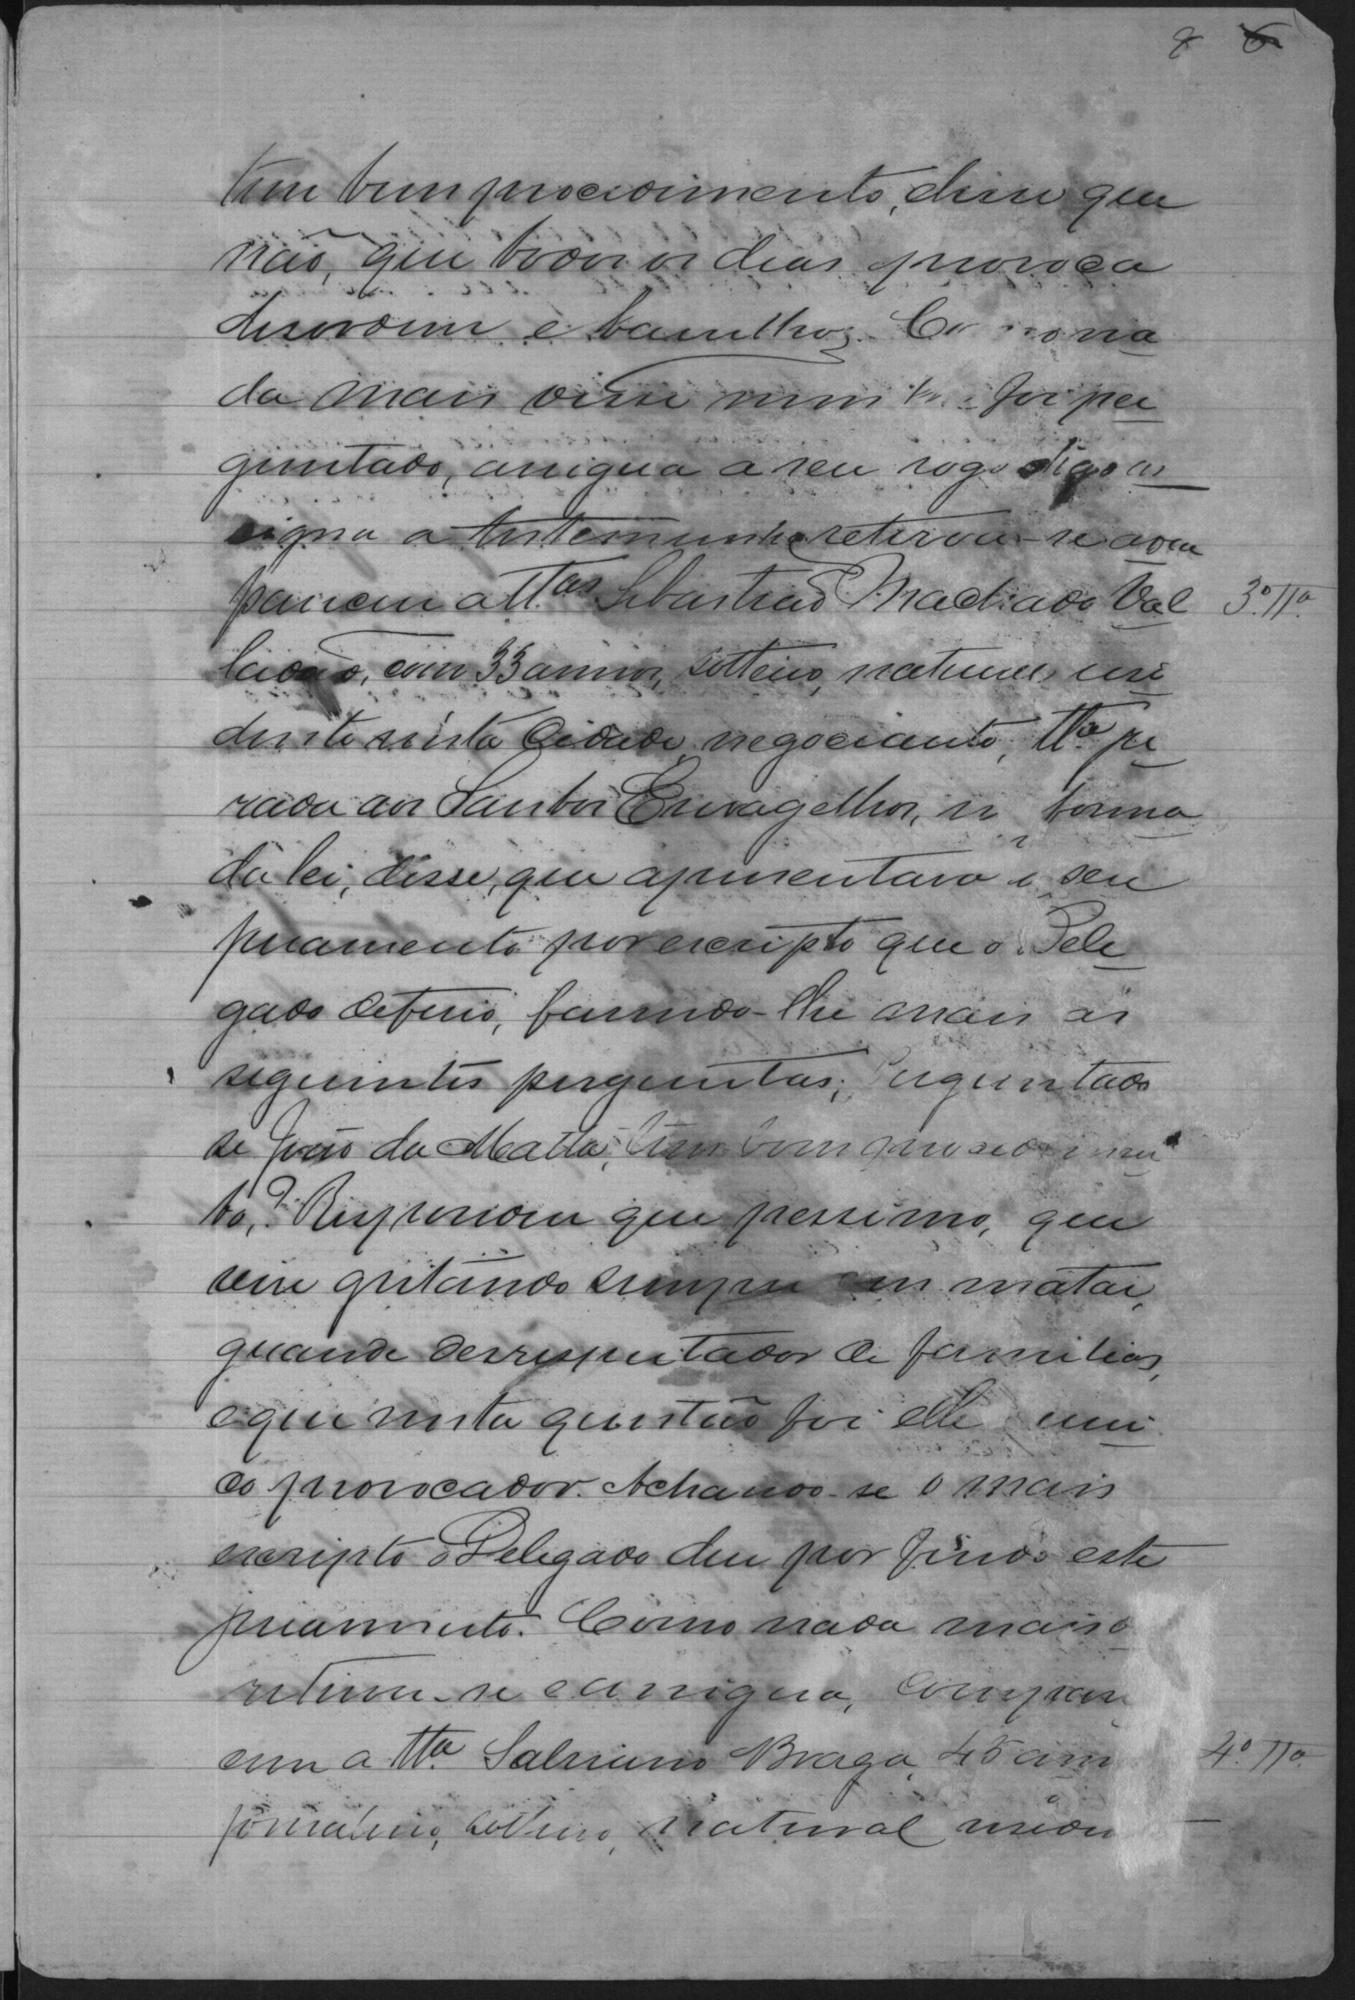 8 6
tem bom procedimento, disse que
não, que todos os dias provoca
desordem e barulhos. Como na
da mais disse nem lhe foi per
guntado, assigna a seu rogo digo as
signa a testemunha retirou-se a
pareceu a Ttas Sebastião Machado Val
ladão, com 33 annos, solteiro, natural, resi
dente nésta Cidade, negociante, Ttª ju
rada aos Santos Envagelhos, na forma
da lei, disse, que apresentava o seu
juramento por escripto que o Dele
gado deferio, fasendo-lhe mais as
seguintes perguntas; Perguntado
se João da Matta, tem bom procedimen
to,? Respondeu que pessimo, que
vive gritando sempre em matar,
grande desrespeitador de familias,
e que nesta questão foi elle uni
co provocador. Achando-se o mais
escripto o Delegado deu por findo este
juramento. Como nada mais
retirou-se e assigna, compare
ceu a Ttª Salviano Braga, 45 ann
jornaleiro, solteiro, natural residen
3ª Ttª
4ª Ttª